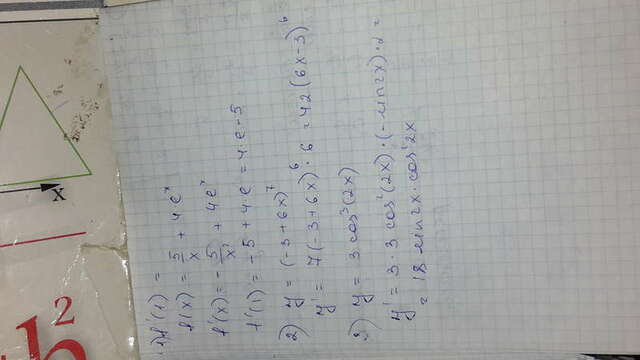 1) f'(1) =
f(x) = 5/x + 4e^x
f'(x) = -5/x² + 4e^x
f'(1) = -5 + 4e = 4e - 5
2) y = (-3+6x)^7
y' = 7(-3+6x)^6 · 6 = 42(6x-3)^6
3) y = 3 cos³(2x)
y' = 3 · 3 cos²(2x) · (-sin 2x) · 2 =
= 18 sin 2x · cos² 2x
x
b²